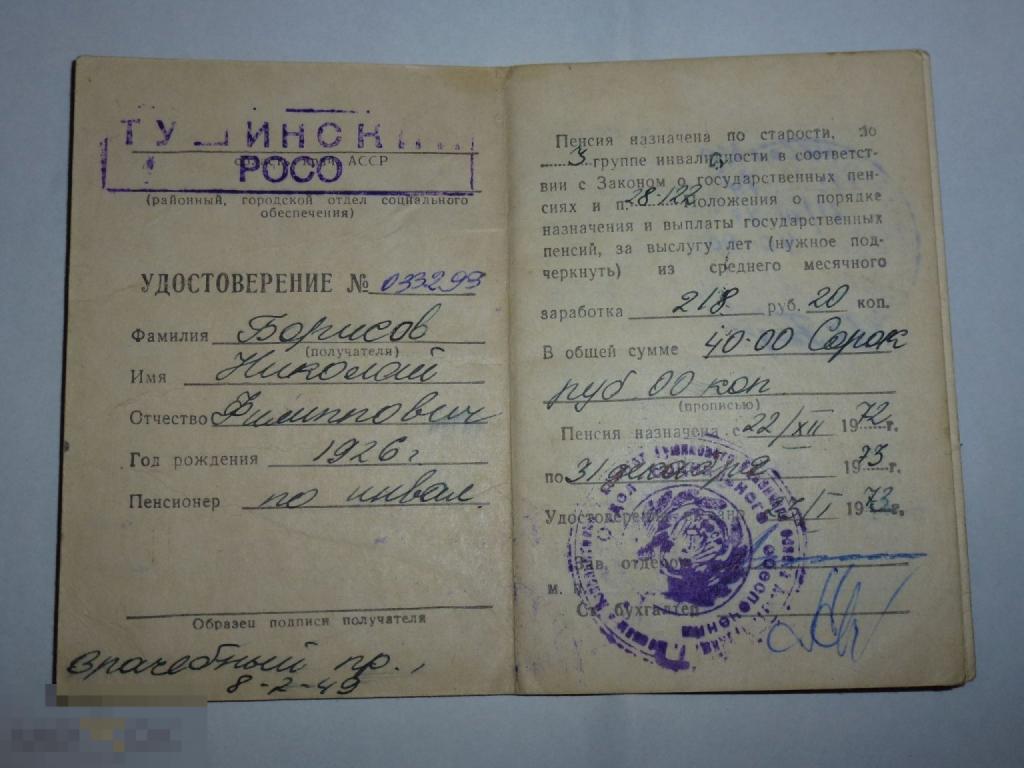 ТУШИНСК
РОСО
АССР
(районный, городской отдел социального
обеспечения)
УДОСТОВЕРЕНИЕ № 033293
Фамилия Борисов
(получателя)
Имя Николай
Отчество Филиппович
Год рождения 1926 г
Пенсионер по инвал.
Образец подписи получателя
врачебный пр.,
8-2-49
Пенсия назначена по старости, по
3 группе инвалидности в соответст-
вии с Законом о государственных пен-
сиях и п. 28.122 положения о порядке
назначения и выплаты государственных
пенсий, за выслугу лет (нужное под-
черкнуть) из среднего месячного
заработка 218 руб. 20 коп.
В общей сумме 40-00 Сорок
руб 00 коп
(прописью)
Пенсия назначена с 22/XII 1972 г.
по 31 декабря 1973 г.
Удостоверение /I 1973 г.
Зав. отделом
м. п.
Ст. бухгалтер